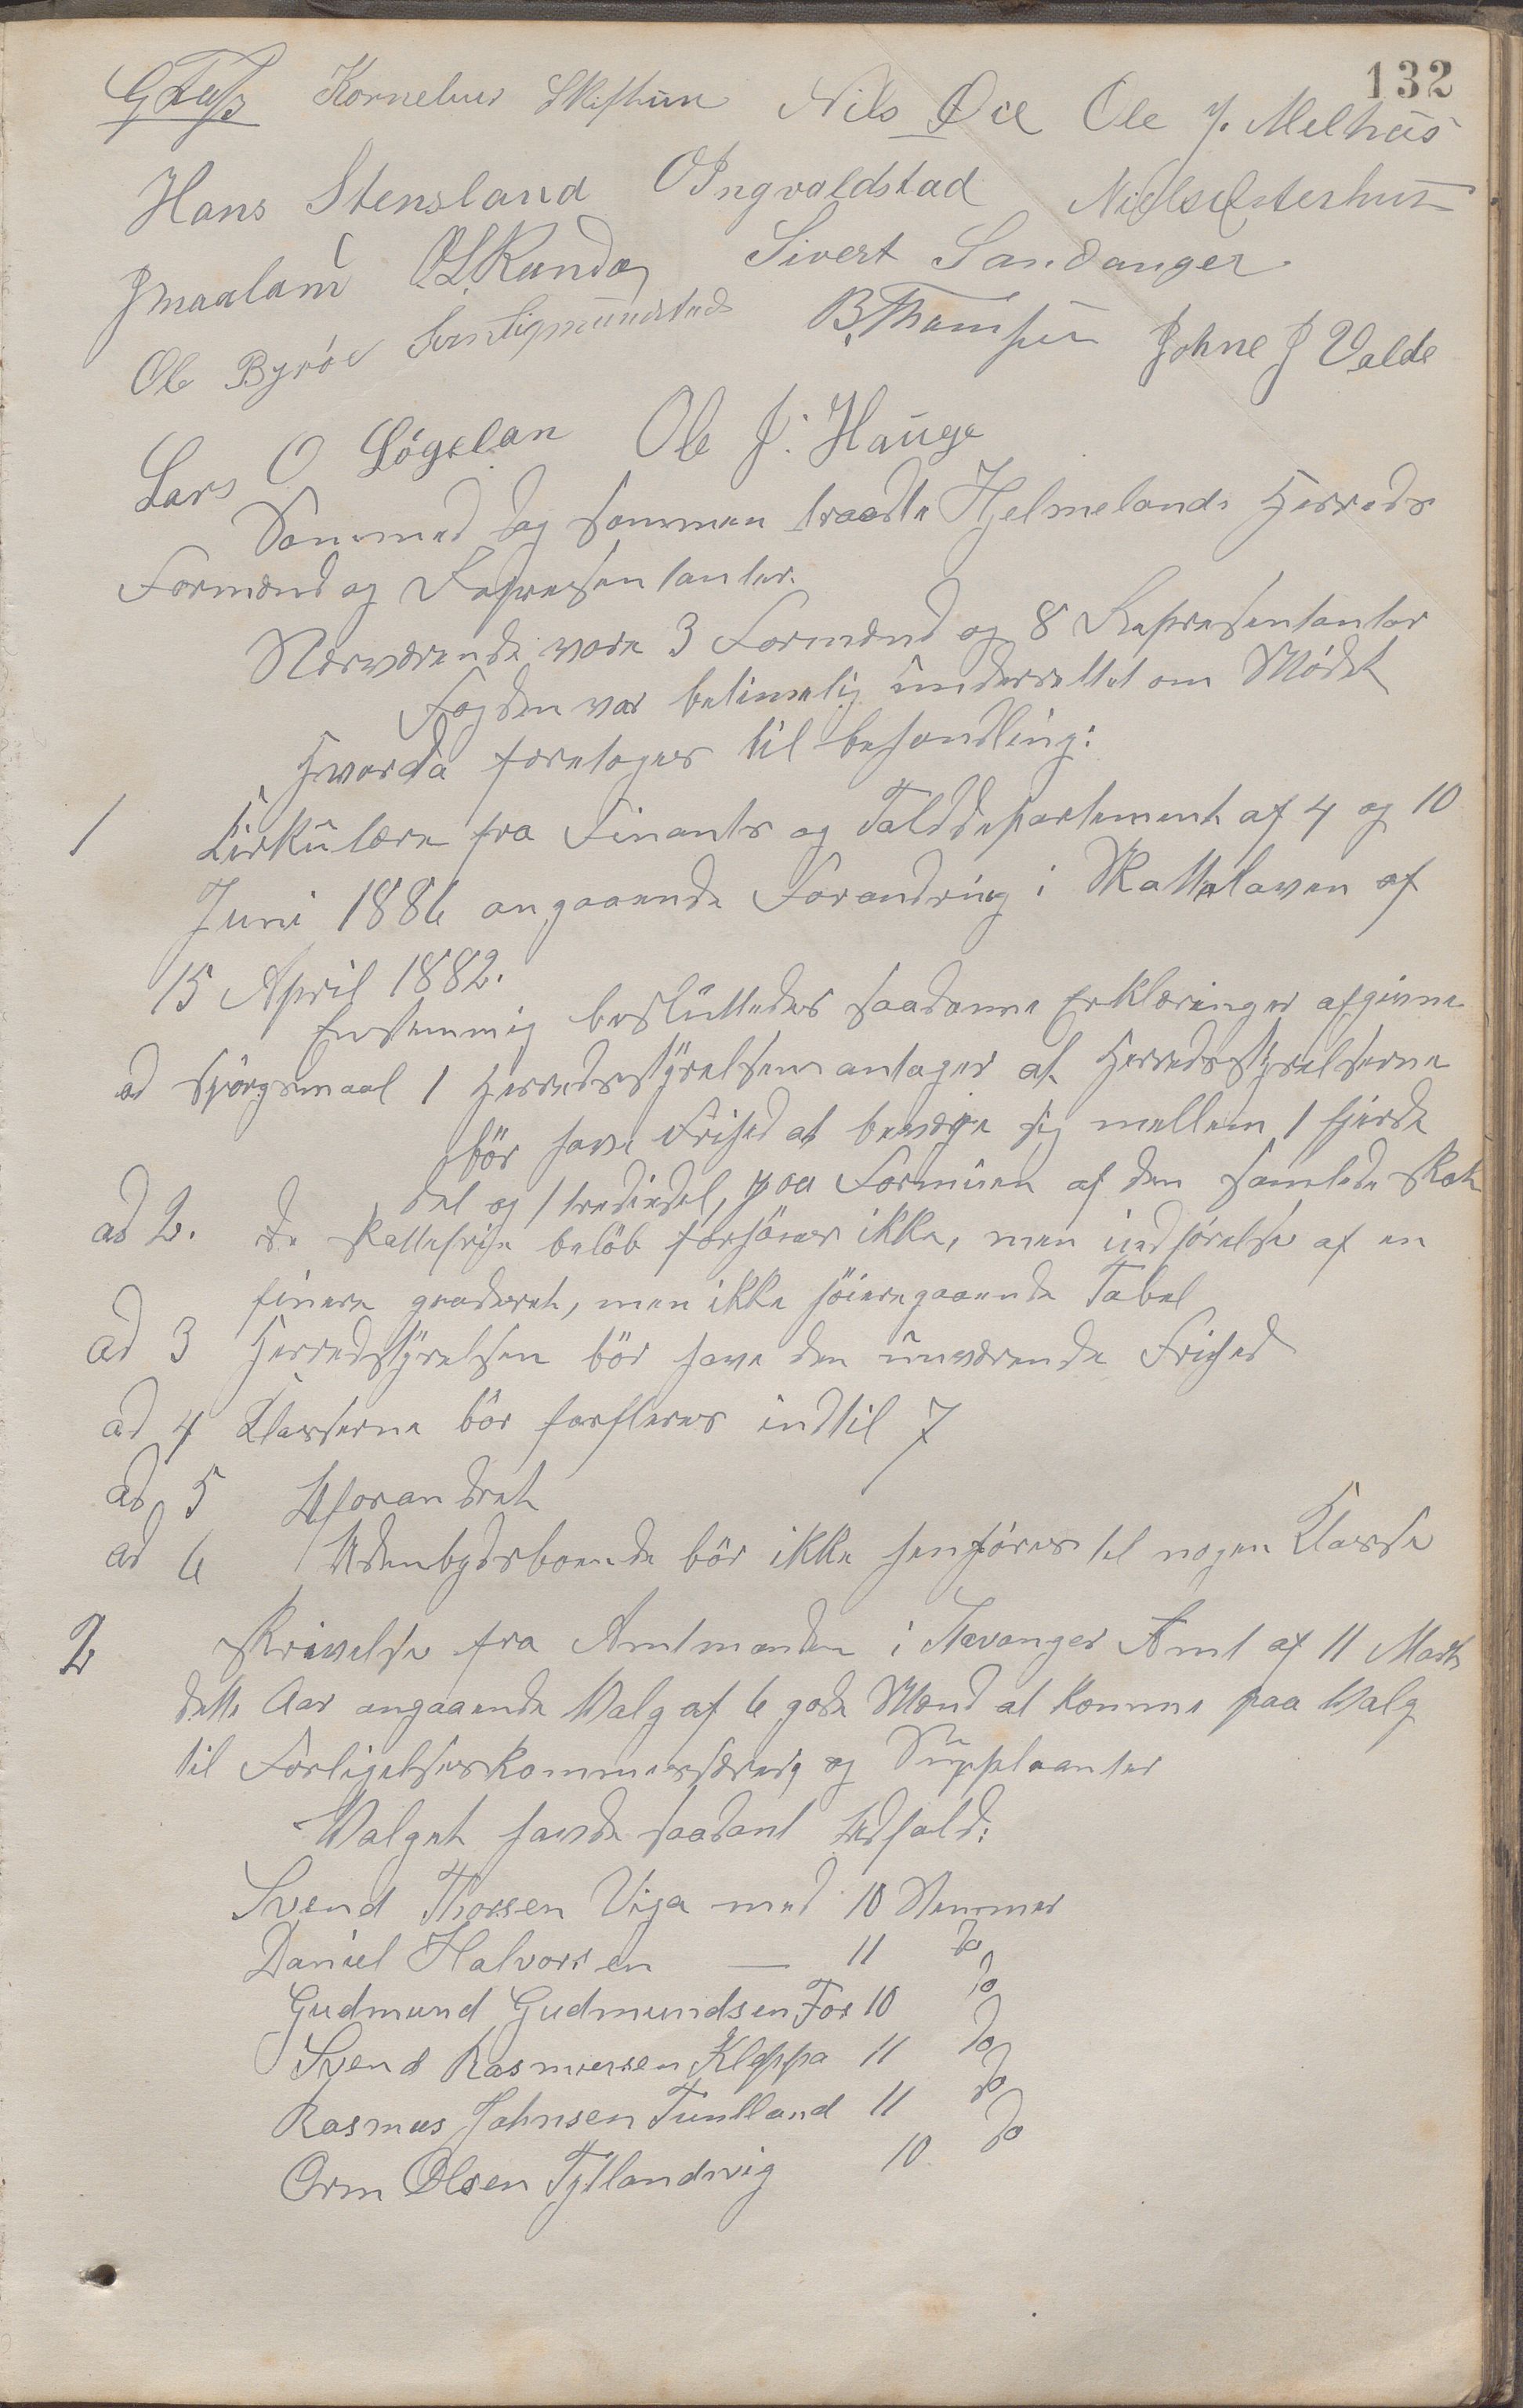 132
Kornelius Skiftun Nils Øie Ole J. Melhus
Hans Stensland O Ingvaldstad Niels Østerhus
J Maaland O L Randa Sivert Sandanger
Ole Byröe Sven Sigmundstad B. Thomsen Johne J Valde
Lars O Lögelan Ole J. Hauge
Sammed Dag sammen traadte Hjelmelands Herreds
Formænd og Repræsentanter.
Nærværende vare 3 Formænd og 8 Repræsentanter
Fogden var betimelig underrettet om Mödet
Hvorda foretoges til behandling:
1 Cirkulære fra Finants og Tolddepartement af 4 og 10
Juni 1886 angaaende Forandring i Skatteloven af
15 April 1882.
Enstemmig besluttedes saadanne Erklæringer afgivne
ad Spörgsmaal 1 Herredsstyrelsen antager at Herredsstyrelserne
bör have Frihed at bevæge sig mellem 1 fjerde
del og 1 trediedel, paa Formuen af den samlede Skat
ad 2. De skattefrie belöb forhöies ikke, men indförelse af en
finere graderet, men ikke höieregaaende Tabel
ad 3 Herredsstyrelsen bör have den nuværende Frihed
ad 4 Klasserne bör forfleres indtil 7
ad 5 Uforandret
ad 6 Udenbygdsboende bör ikke henföres til nogen Klasse
2 Skrivelse fra Amtmanden i Stavanger Amt af 11 Marts
dette Aar angaaende Valg af 6 gode Mænd at komme paa Valg
til Forligelseskommissærer og Suppleanter
Valget havde saadant Udfald:
Svend Thorsen Viga med 10 Stemmer
Daniel Halvorsen — 11 do
Gudmund Gudmundsen Fos 10 do
Svend Rasmussen Kleppa 11 do
Rasmus Johnsen Tuntland 11 do
Orm Olsen Tytlandsvig 10 do